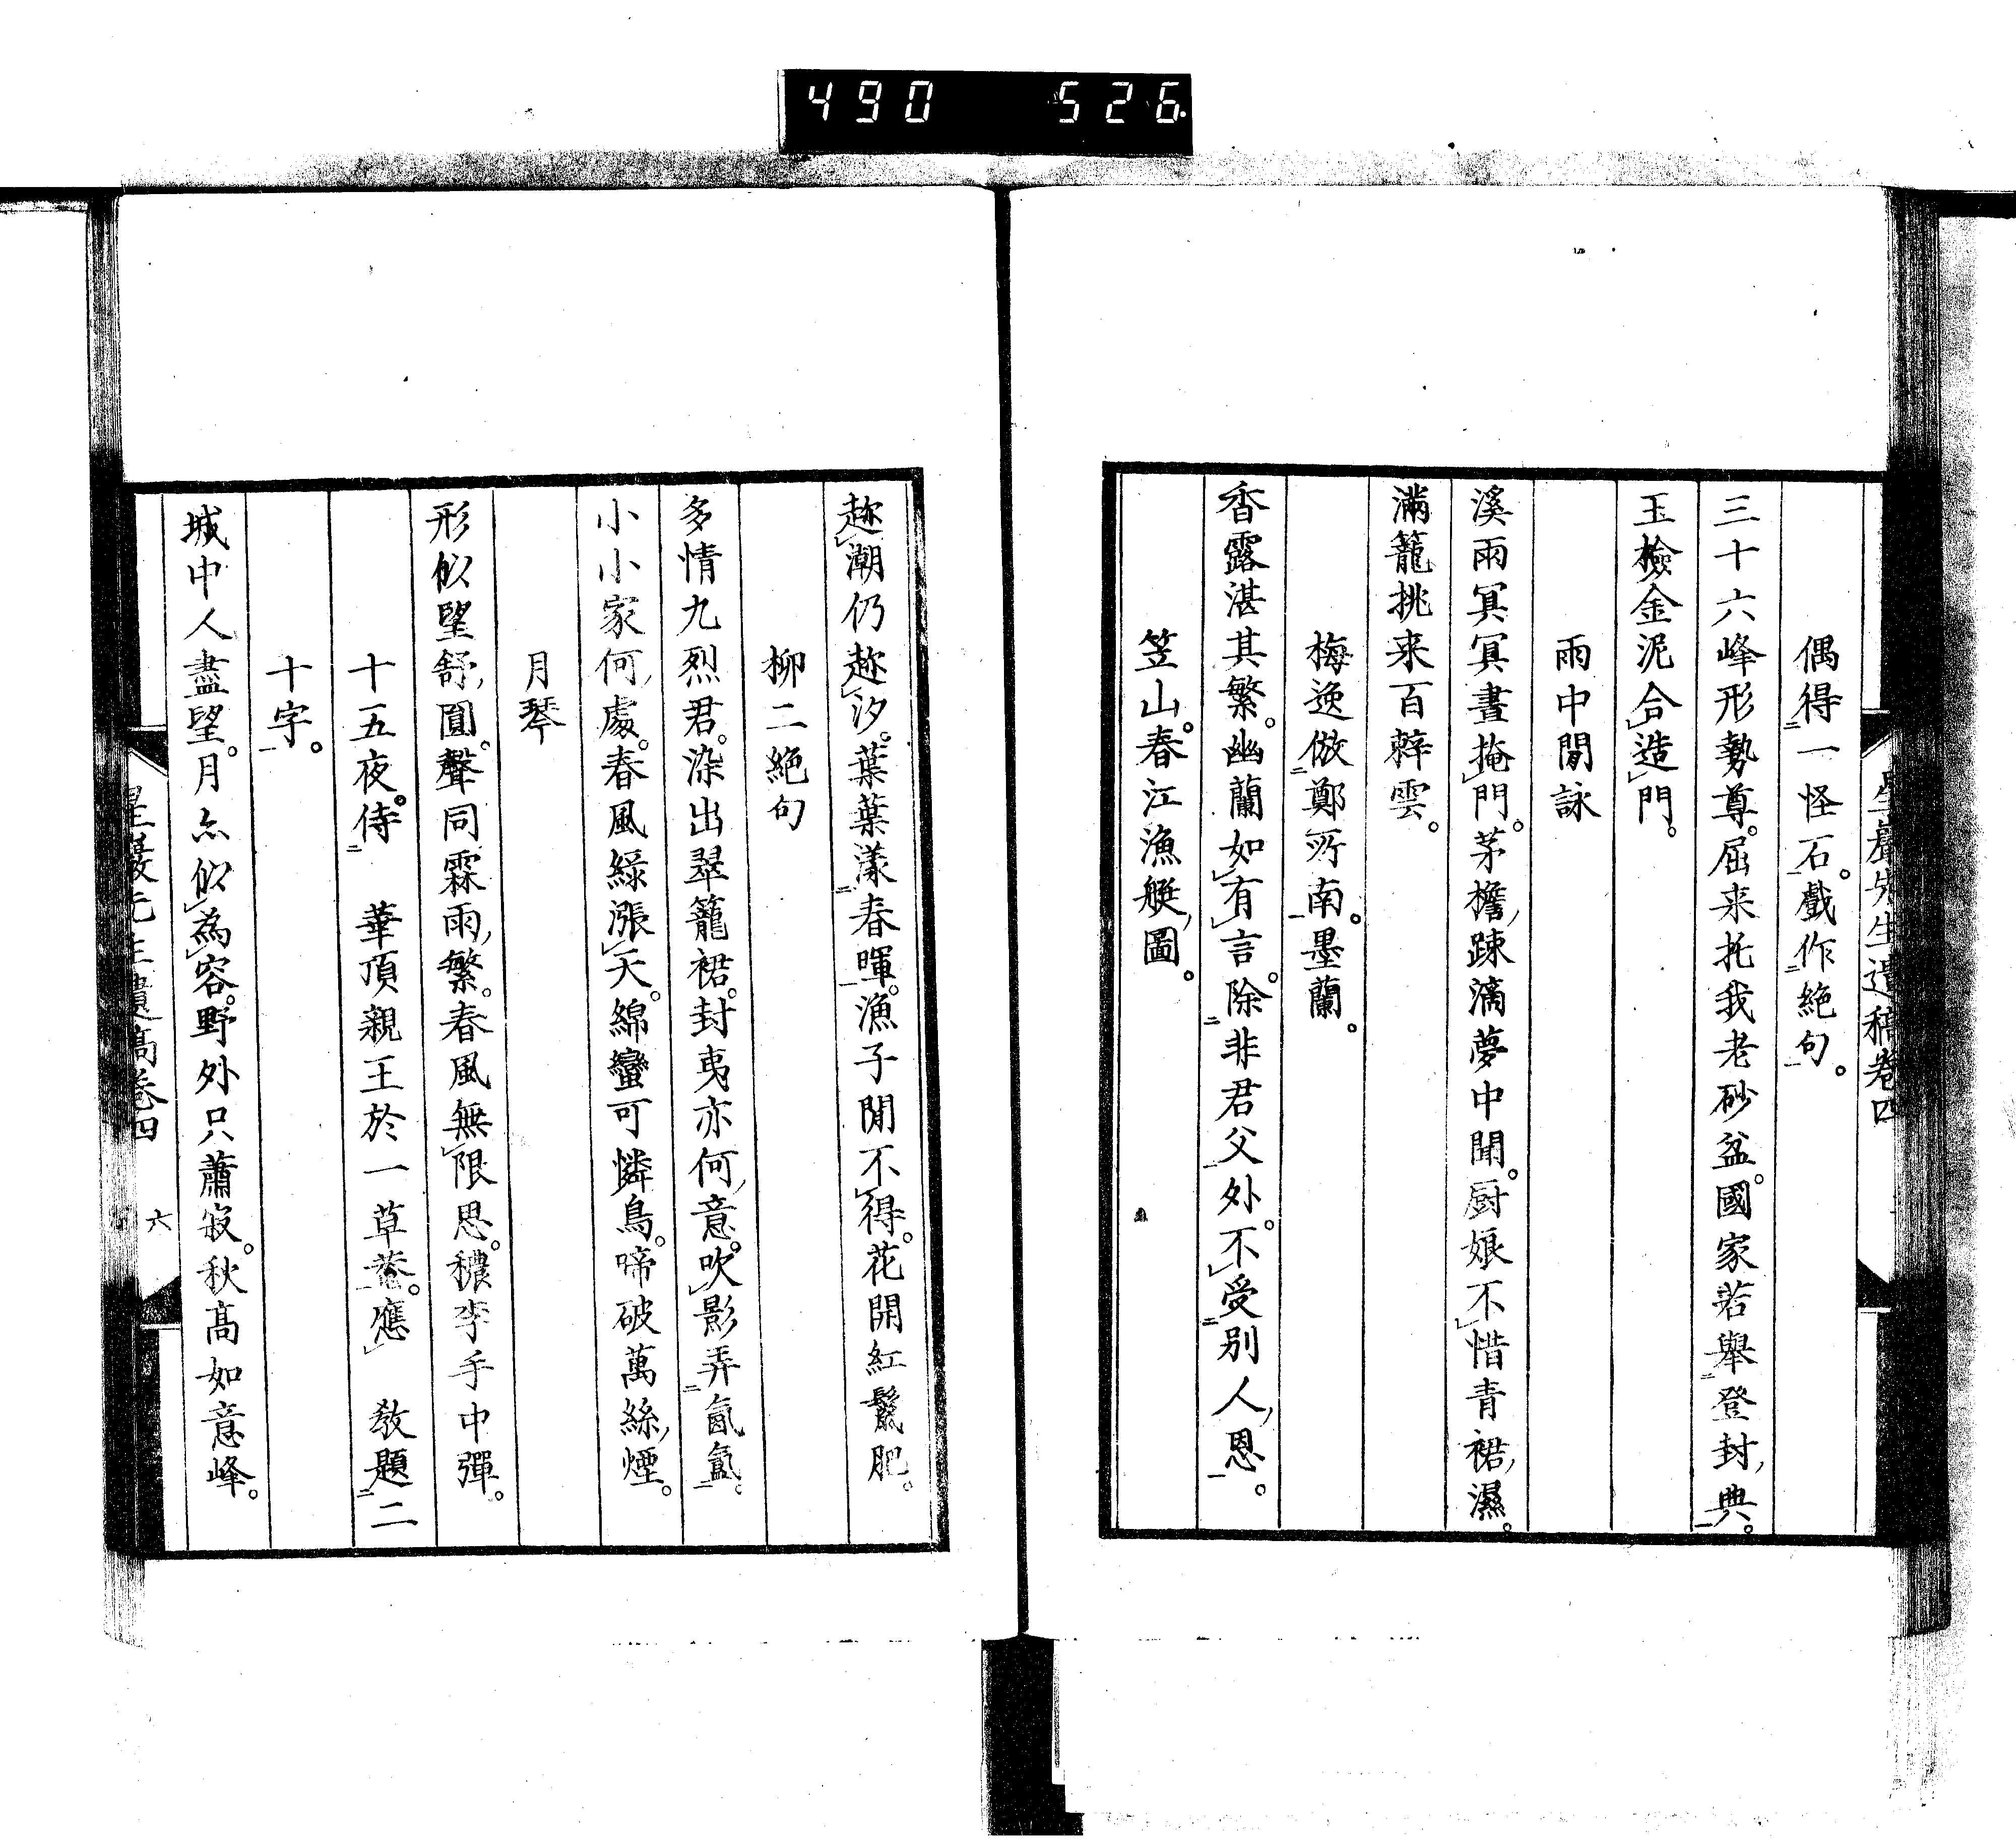 490 526
星巖先生遺稿卷四
偶得二一怪石一。戲作二絶句一。
三十六峰形勢尊。屈来托我老砂盆。國家若舉二登封,典一。
玉檢金泥合」造」門。
雨中閒詠
溪雨冥冥晝掩」門。茅檐,疎滴夢中聞。厨娘不」惜青裙,濕。
滿籠挑来百辢雲。
梅逸倣二鄭所南一。墨蘭。
香露湛其繁。幽蘭如」有」言。除二非君父一外。不」受二別人,恩一。
笠山。春江漁艇,圖。
趂」潮仍趂」汐。葉葉漾二春暉一。漁子閒不」得。花開紅鬣肥。
柳二絶句
多情九烈君。染出翠籠裙。封夷亦何,意。吹」影弄二氤氳一。
小小家何,處。春風綠漲」天。綿蠻可憐鳥。啼破萬絲,煙。
月琴
形似望舒,圓。聲同霖雨,繁。春風無」限思。穠李手中彈。
十五夜。侍二 華頂親王於一草菴一。應」 教題二二
十字一。
城中人盡望。月亦似」為」容。野外只蕭寂。秋高如意峰。
星巖先生遺稿卷四 六